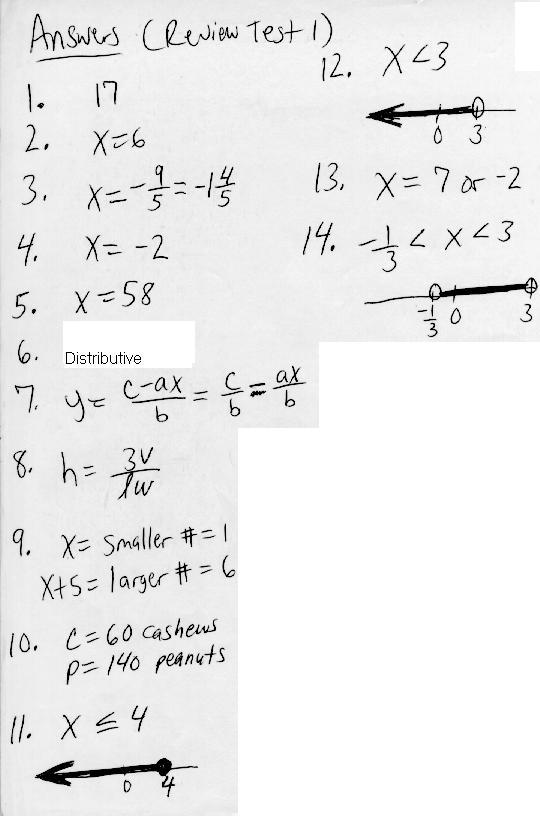 Answers (Review Test 1)
1. 17
2. x=6
3. x=-9/5=-1 4/5
4. x= -2
5. x=58
6. Distributive
7. y= c-ax/b = c/b = ax/b
8. h= 3V/lw
9. x= smaller #=1
x+5= larger #=6
10. C=60 cashews
P=140 peanuts
11. x ≤ 4
0 4
12. x<3
0 3
13. x= 7 or -2
14. -1/3 < x <3
-1/3 0 3